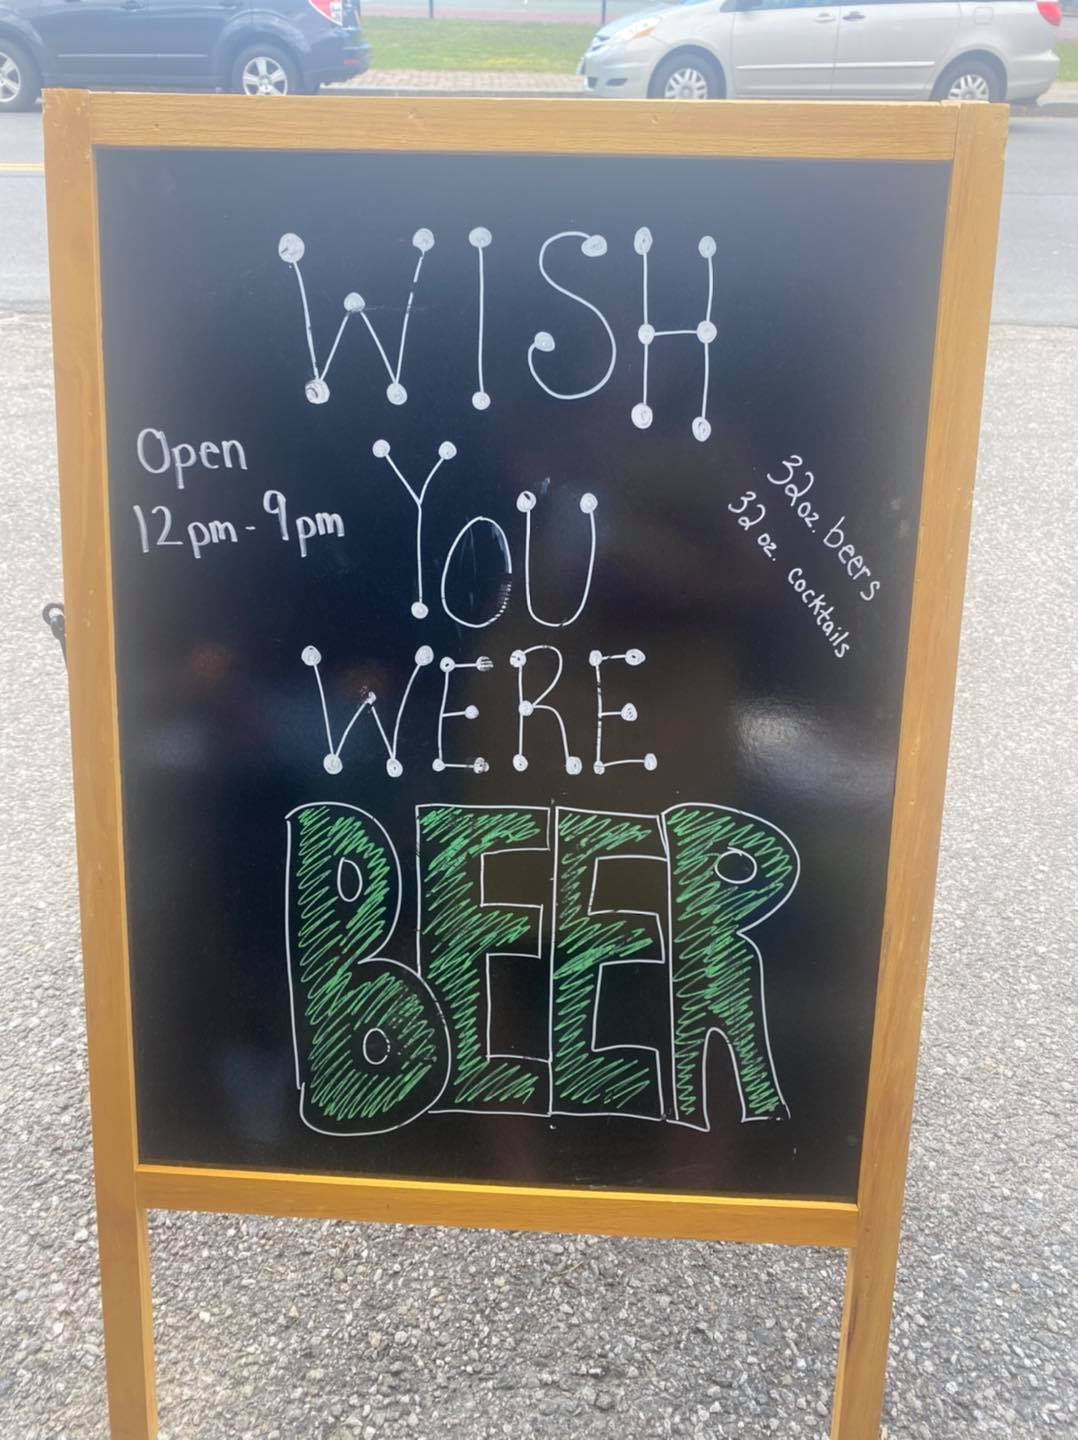 WISH
YOU
WERE
BEER
Open
12pm-9pm
32oz. beers
32 oz. cocktails